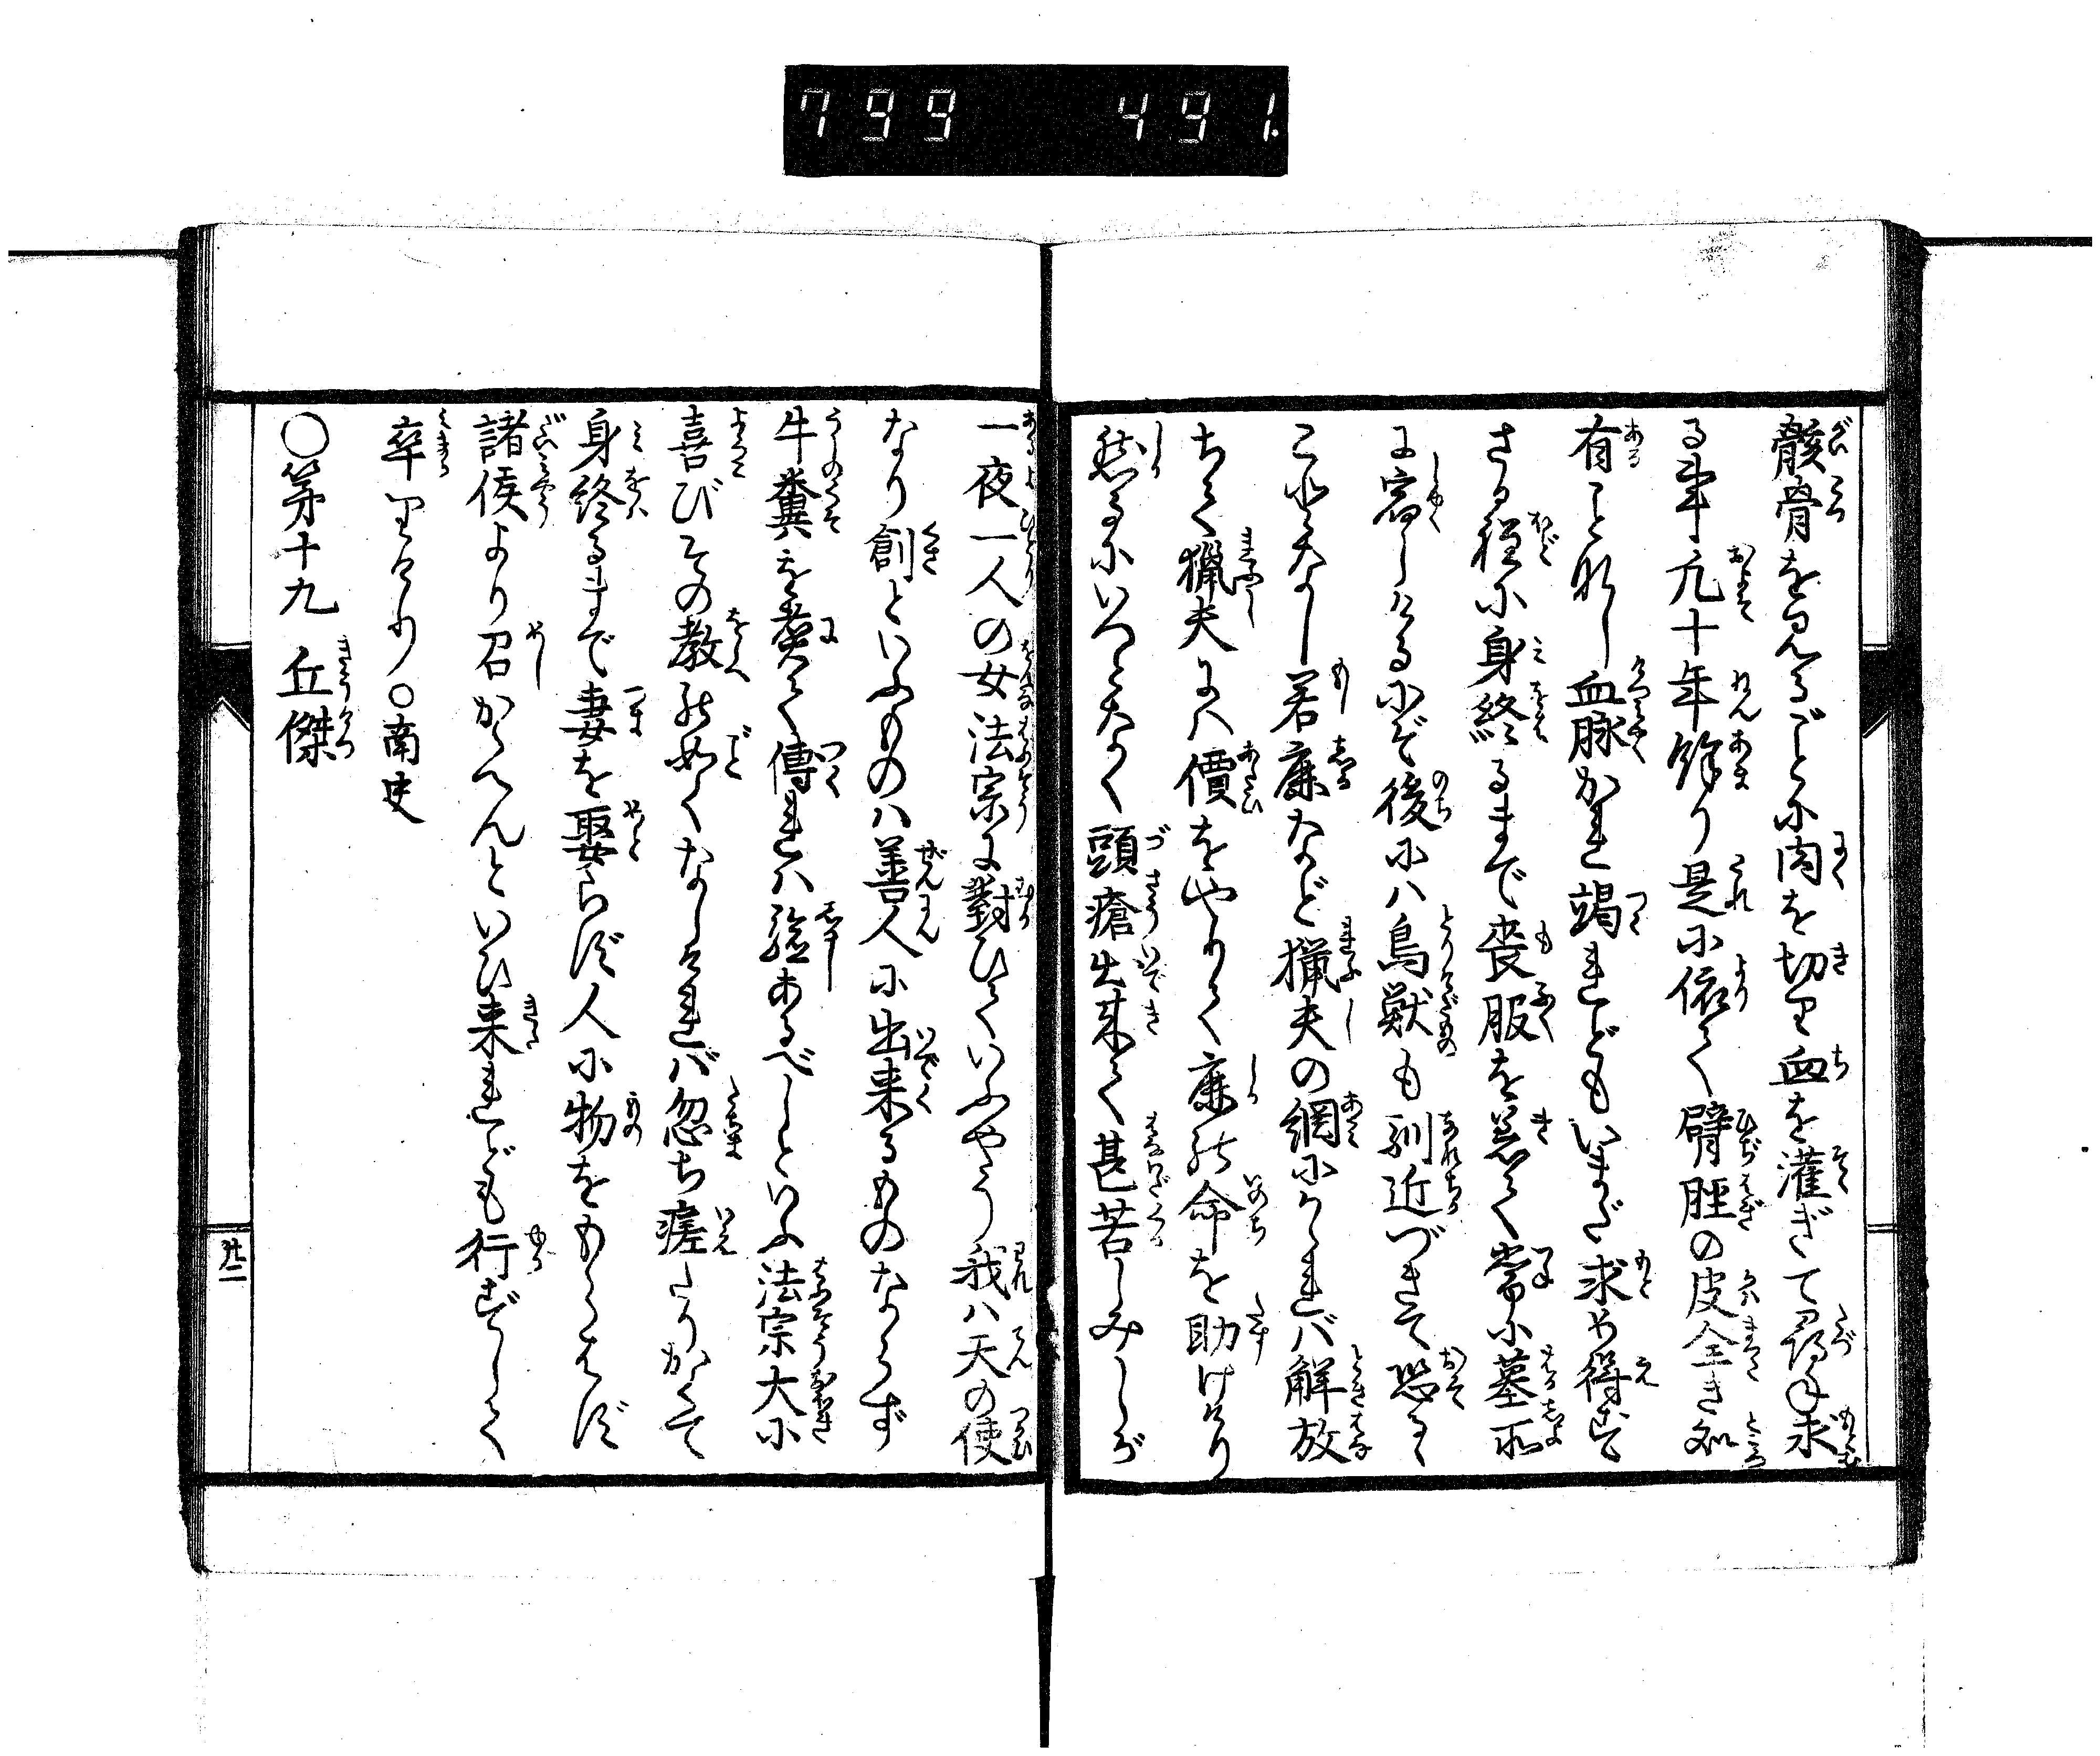 799 491.
骸骨を見るごとに肉を切り血を灌ぎて尋ね求
る事凡十年餘り是に依て臂脛の皮全き処
有ことなし血脉かれ竭れどもいまだ求め得ず
さる程に身終るまで喪服を着て常に墓所
に宿しけるにぞ後にハ鳥獣も馴近づきて恐るゝ
こゝろなし若麋など猟夫の網にかゝれバ解放
ちて猟夫にハ價をやりて麋の命を助けけり
然るにいつとなく頭瘡出来て甚苦しみしが
一夜一人の女法宗に對ひていふやう我ハ天の使
なり創といふものハ善人に出来るものならず
牛糞を煑て傳れハ驗あるべしといふ法宗大に
喜びその教の如くなしけれバ忽ち瘥たりかくて
身終るまで妻を娶らず人に物をもらはず
諸侯より召かゝへんといひ来れども行ずして
卒りけり○南史
○第十九 丘傑
廿二